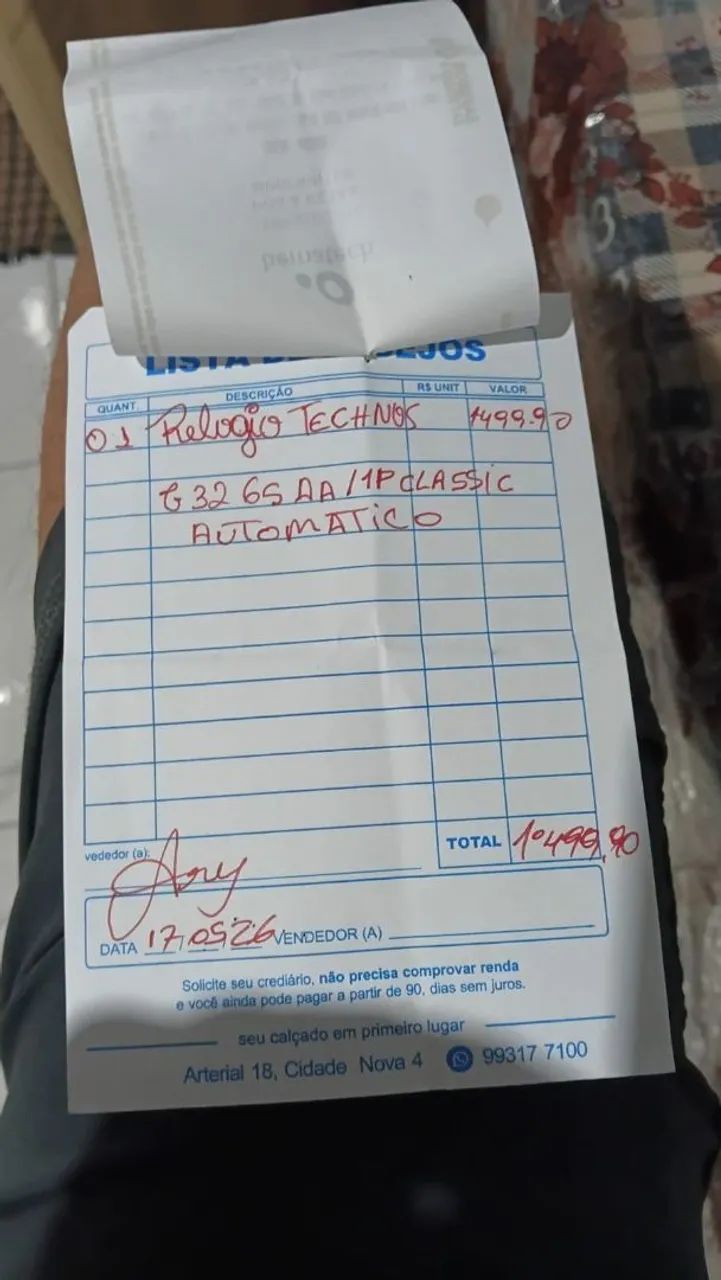 bematech
LISTA DE DESEJOS
QUANT. DESCRIÇÃO R$ UNIT VALOR
01 Relogio TECHNOS 1499.90
G32 65 AA/1P CLASSIC
AUTOMATICO
TOTAL 1.499,90
vededor (a):
DATA 17.05.26 VENDEDOR (A)
Solicite seu crediário, não precisa comprovar renda
e você ainda pode pagar a partir de 90, dias sem juros.
seu calçado em primeiro lugar
Arterial 18, Cidade Nova 4 99317 7100